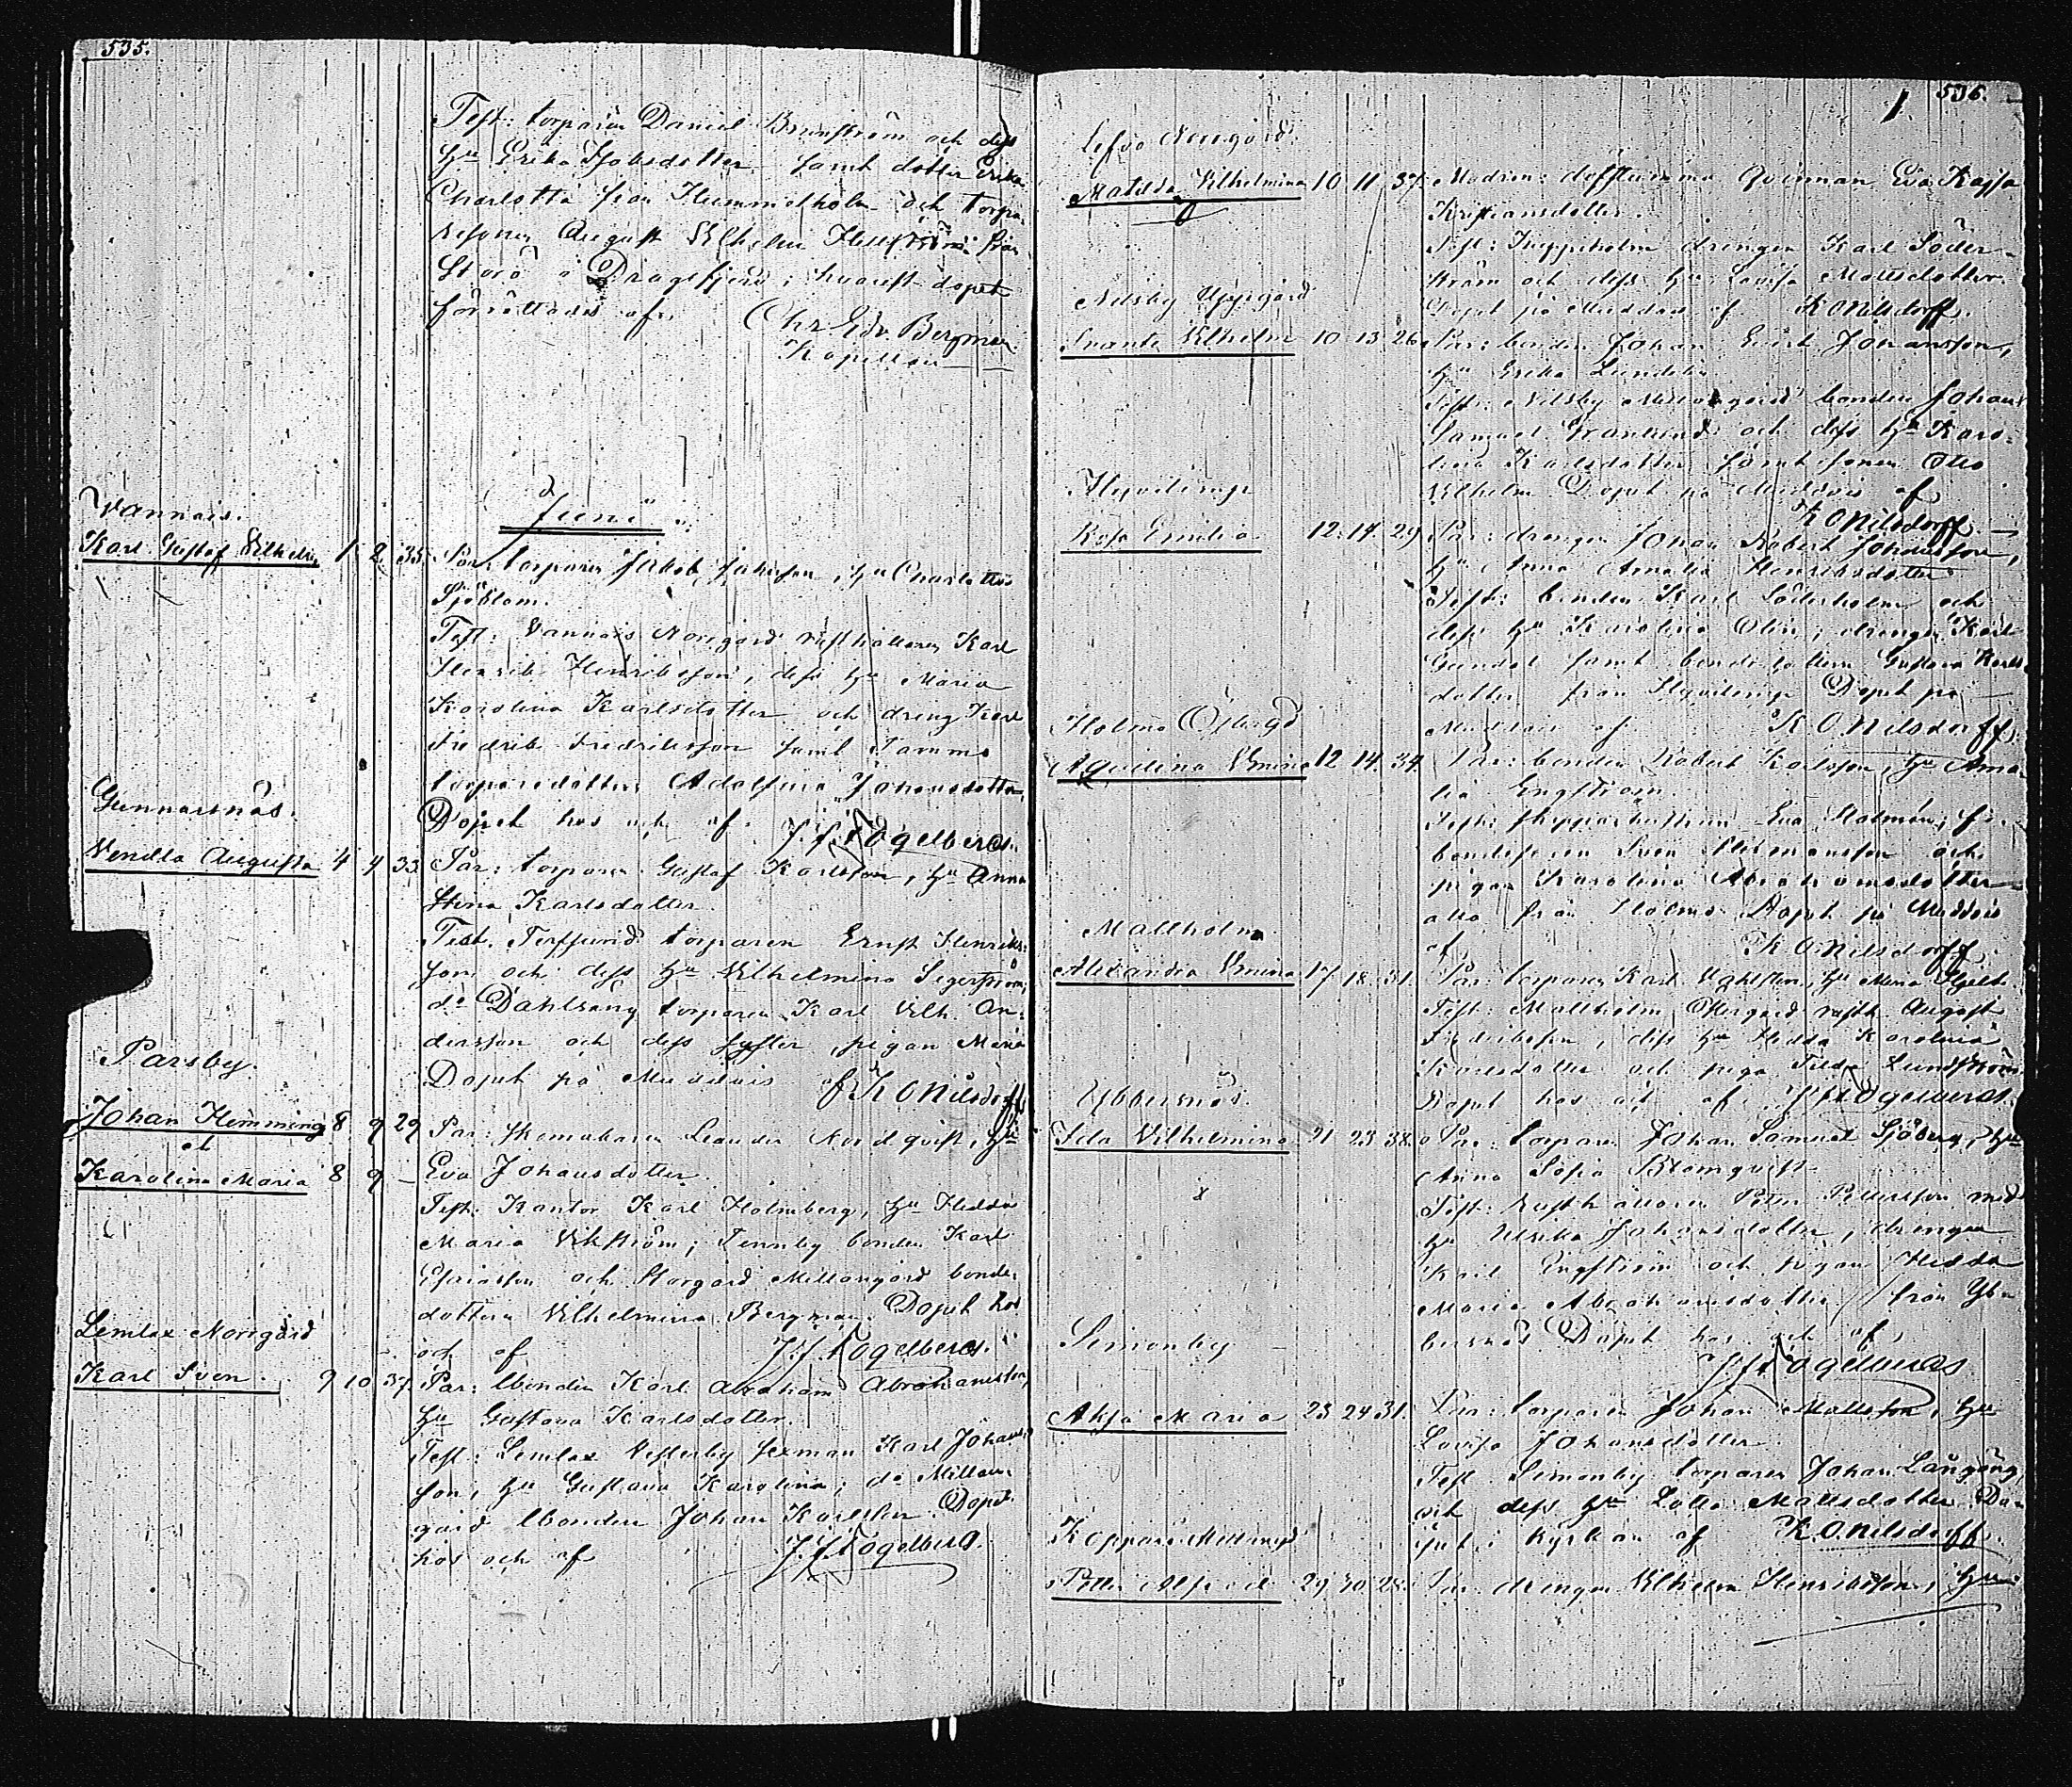 535.
Test: torparen Daniel Brunström och dess
hu Erika Jakobsdotter samt dotter Erika
Charlotta från Hummelholm och torpa-
resonen August Vilhelm Hellström från
Storö i Dragsfjerd; hvarest dopet
förrättades af Chr Edv. Bergman
Kapellan
Juni
Vannais.
Karl Gustaf Vilhelm 1 2 35. Par: torparen Jakob Jakobsson, hu Charlotta
Sjöblom.
Test: Vannais Norrgård rusthållaren Karl
Henrik Henriksson, dess hu Maria
Karolina Karlsdotter och dreng Karl
Fredrik Fredriksson samt samma
torparedotter Adolfina Johansdotter
Döpet hos och af J. J. Fogelberg.
Gunnarsnäs.
Vendla Augusta 4 9 33. Par: torparen Gustaf Karlsson, hu Anna
Stina Karlsdotter.
Test. torparen Ernst Henriks-
son och dess hu Vilhelmina Segerström,
do Dahlsäng torparen Karl Vilh. An-
dersson och dess syster, pigan Mina
Döpet på Muddais af K O Nilsdorff
Parsby.
Johan Hemming 8 9 29 Par: skomakaren Leander Nordqvist, hu
et
Karolina Maria 8 9 – Eva Johansdotter.
Test: Kantor Karl Holmberg, hu Hedda
Maria Vikström; Tennby bonden Karl
Esaiasson och Storgård Mellangård bonde-
dottern Vilhelmina Bergman. Döpet hos
och af J. J. Fogelberg.
Lemlax Norrgård
Karl Sven. 9 10 37. Par: bonden Karl Abraham Abrahamsson,
hu Gustava Karlsdotter.
Test: Lemlax Vesterby sexman Karl Johans-
son, hu Gustava Karolina; do Mellan-
gård bonden Johan Karlsson. Döpet
hos och af J. J. Fogelberg.
536.
Lefvo Norrgård.
Matilda Vilhelmina 10 11 37. Modren: döfstumma Qvinnan Eva Kajsa
Kristiansdotter.
Test: drengen Karl Söder-
ström och dess hu Lovisa Mattsdotter.
Döpet på Muddais af K O Nilsdorff.
Nilsby Uppgård
Svante Vilhelm 10 13 26. Par: bonden Johan Evert Johansson,
hu Erika Lundelin.
Test: Nilsby Mellangård bonden Johan
Samuel Granlund och dess hu Karo-
lina Karlsdotter samt sonen Otto
Vilhelm. Döpet på Muddais af
K O Nilsdorff
Hyvilemp
Rosa Emilia 12. 14. 29 Par: drengen Johan Robert Johansson,
hu Anna Amalia Henriksdotter
Test: bonden Karl Söderholm och
dess hu Karolina Olin; drengen Karl
samt bondedottern Gustava Karls-
dotter från Döpet på
Muddais af K O Nilsdorff.
Holmo Östergd
Agulina Vmina 12 14. 34. Par: bonden Robert Karlsson, hu Ama-
lia Engström.
Test: skepparhustrun Eva Malmén;
bondesonen Sven och
pigan Karolina Abrahamsdotter
alla från Holmo. Döpet på Muddais
af K O Nilsdorff.
Mallholm
Alexandra Vmina 17 18 31. Par: torparen Karl Vahlsten, hu Mina Hjelt.
Test: Mallholm Östergård rusth. August
Fredriksson, dess hu Hedda Karolina
Karlsdotter och piga Lundström
Döpet hos och af J. J. Fogelberg.
Ybbersnäs.
Ida Vilhelmina 21 23 38. Par: torparen Johan Samuel Sjöberg, hu
Anna Sofia Blomqvist
Test: Rusthållaren Petter Pettersson med
hu Ulrika Johansdotter, drengen
Karl Engström och pigan Hedda
Maria Abrahamsdotter från Yb-
bersnäs. Döpet hos och af
J. J. Fogelberg
Simonby
Aksa Maria 23 24 31. Par: torparen Johan Mattsson, hu
Lovisa Johansdotter.
Test. Simonby torparen Johan Långäng
och dess hu Lotta Mattsdotter. Dö-
pet i kyrkan af K. O. Nilsdorff.
Koppar Mellangd
Petter Alfred 29 30 28. Par: drengen Vilhelm Henriksson, hu